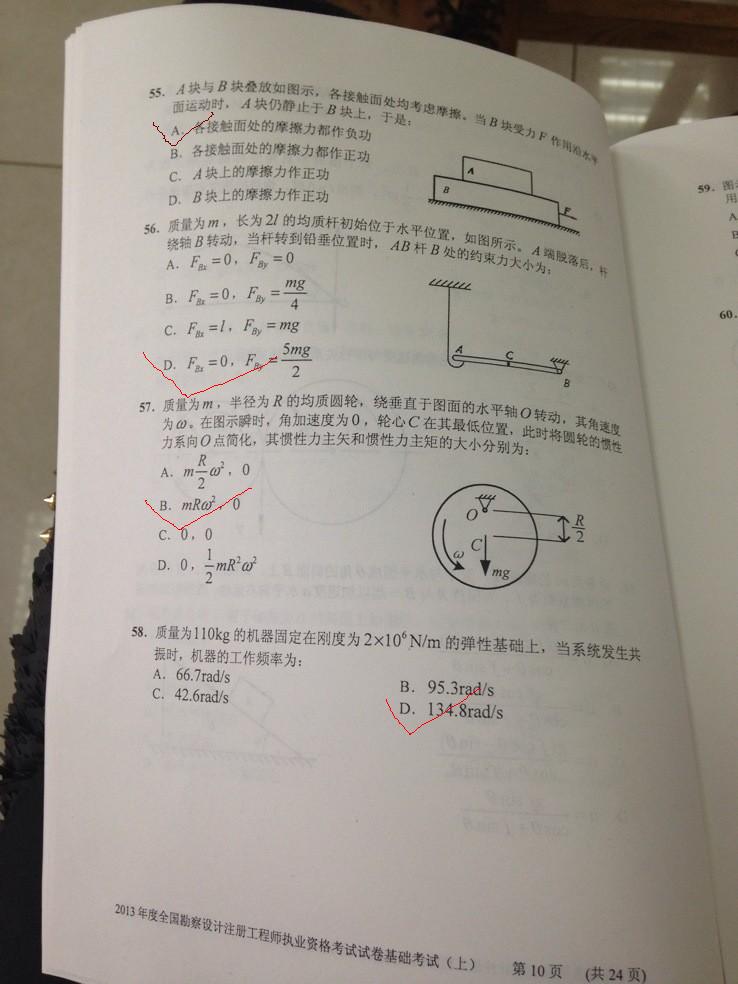 55. A块与B块叠放如图示，各接触面处均考虑摩擦。当B块受力F作用沿水平
面运动时，A块仍静止于B块上，于是：
A. 各接触面处的摩擦力都作负功
B. 各接触面处的摩擦力都作正功
C. A块上的摩擦力作正功
D. B块上的摩擦力作正功
A
B
F
56. 质量为m，长为2l的均质杆初始位于水平位置，如图所示。A端脱落后，杆
绕轴B转动，当杆转到铅垂位置时，AB杆B处的约束力大小为：
A. F_{Bx}=0，F_{By}=0
B. F_{Bx}=0，F_{By}=mg/4
C. F_{Bx}=l，F_{By}=mg
D. F_{Bx}=0，F_{By}=5mg/2
A C B
57. 质量为m，半径为R的均质圆轮，绕垂直于图面的水平轴O转动，其角速度
为ω。在图示瞬时，角加速度为0，轮心C在其最低位置，此时将圆轮的惯性
力系向O点简化，其惯性力主矢和惯性力主矩的大小分别为：
A. m R/2 ω²，0
B. mRω²，0
C. 0，0
D. 0，1/2 mR²ω²
O
R/2
C
ω
mg
58. 质量为110kg的机器固定在刚度为2×10⁶N/m的弹性基础上，当系统发生共
振时，机器的工作频率为：
A. 66.7rad/s
B. 95.3rad/s
C. 42.6rad/s
D. 134.8rad/s
2013年度全国勘察设计注册工程师执业资格考试试卷基础考试（上） 第10页 （共24页）
59. 图
用
A
60.